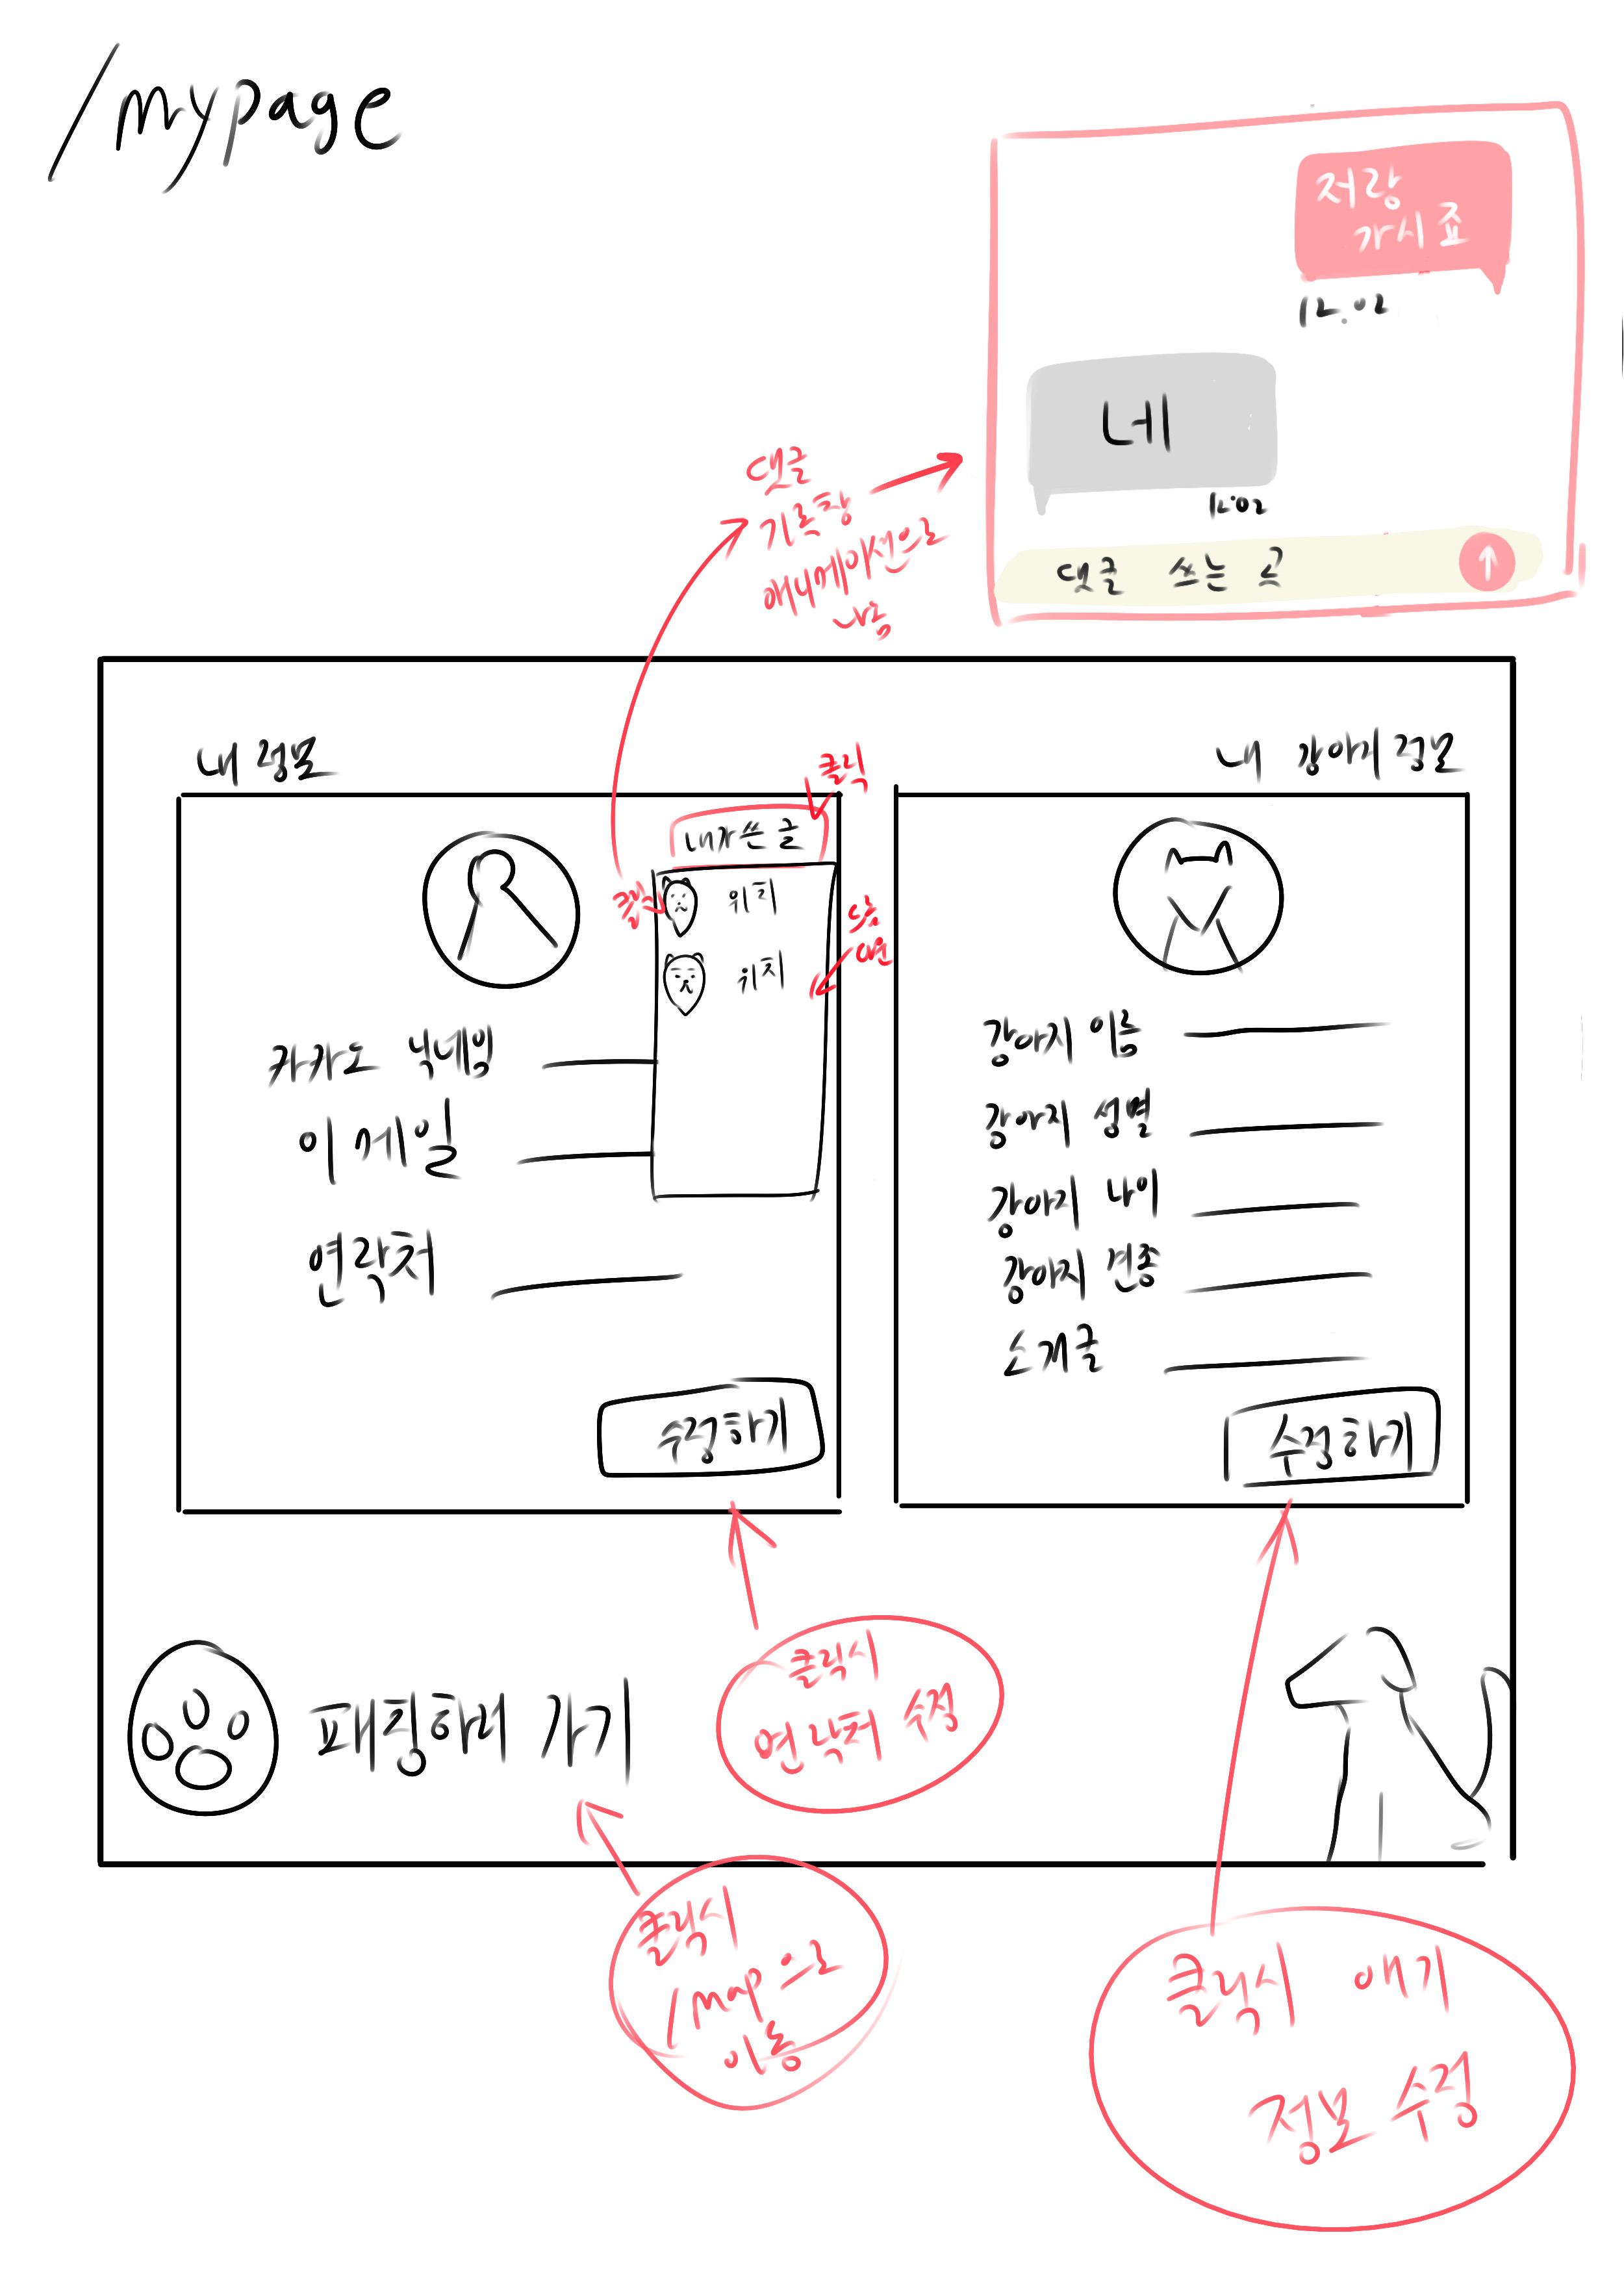 /mypage
저랑
가시죠
12.02
네
12.02
댓글 쓰는 곳
댓글
기록창
애니메이션으로
나옴
내 정보
클릭
내 강아지 정보
내가 쓴 글
클릭
위치
위치
카카오 닉네임
이메일
연락처
수정하기
강아지 이름
강아지 성별
강아지 나이
강아지 견종
소개글
수정하기
패킹하러 가기
클릭시
연락처 수정
클릭시
/map으로
이동
클릭시 애기
정보 수정